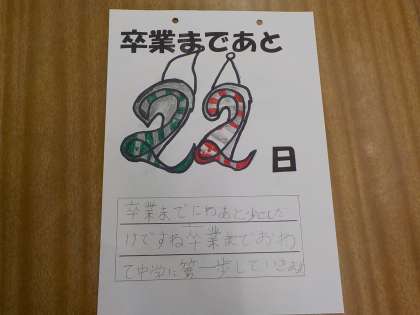 卒業まであと
22日
卒業までにわあと少しだ
けですね卒業までおわ
て中学に第一歩していきましょ